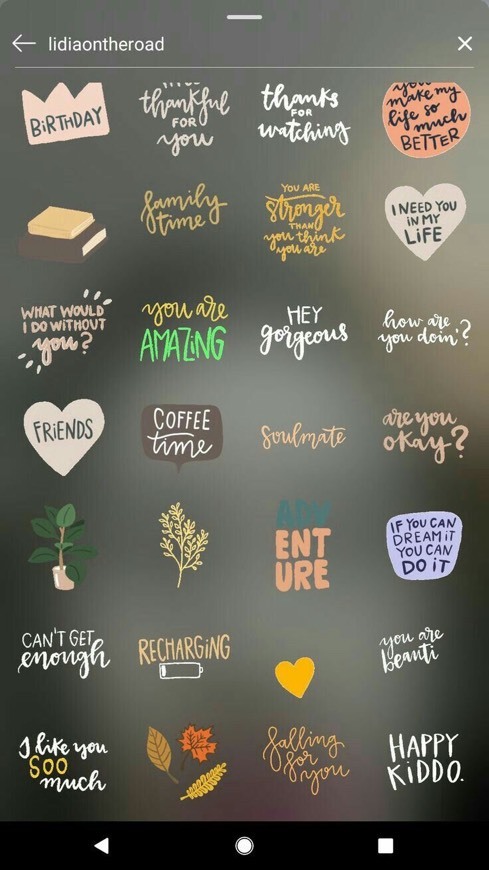 lidiaontheroad
BiRTHDAY
thankful
FOR
you
thanks
FOR
watching
you
make my
life so
much
BETTER
family
time
YOU ARE
stronger
THAN
you think
you are
I NEED YOU
IN MY
LiFE
WHAT WOULD
I DO WiTHOUT
you?
you are
AMAZiNG
HEY
gorgeous
how are
you doin'?
FRiENDS
COFFEE
time
soulmate
are you
okay?
ADV
ENT
URE
IF YOU CAN
DREAM iT
YOU CAN
DO iT
CAN'T GET
enough
RECHARGiNG
you are
beauti
I like you
SOO
much
falling
for
you
HAPPY
KiDDO.